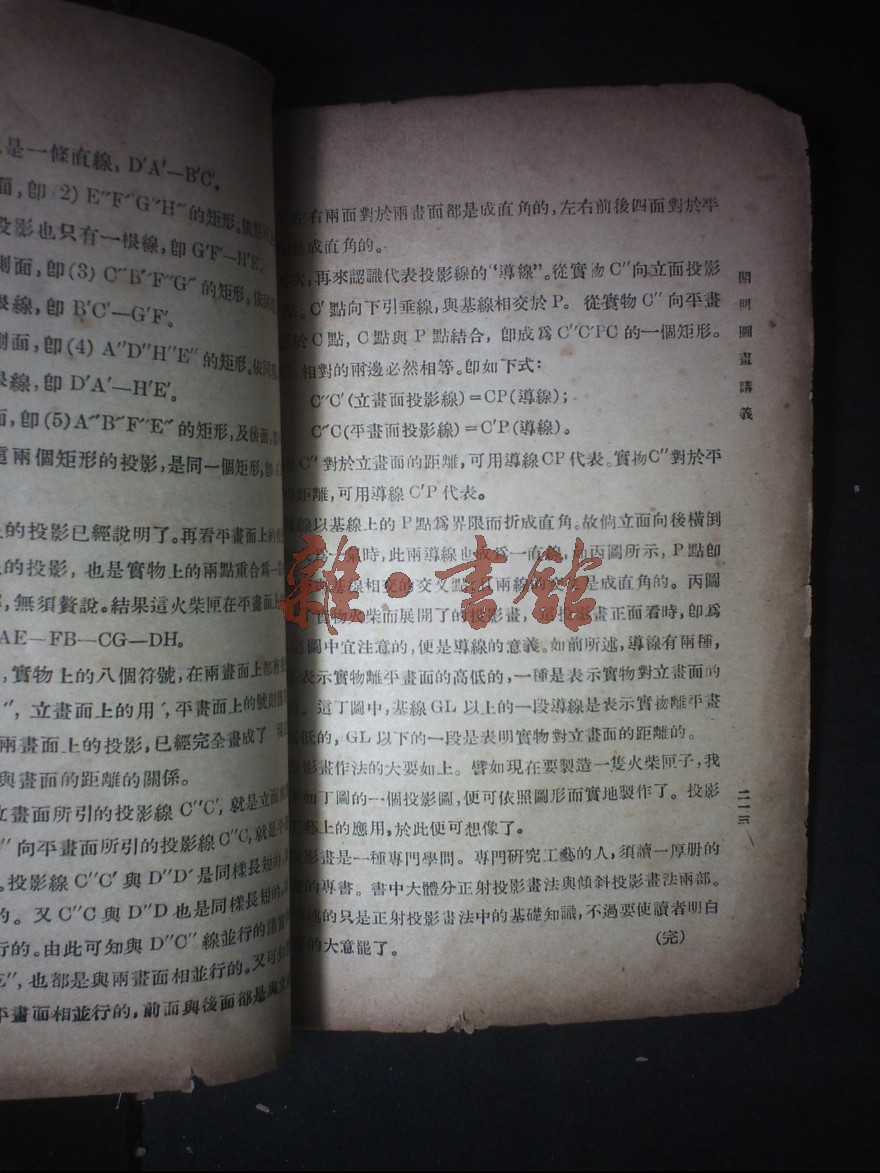 是一條直線, D′A′—B′C′。
面,卽(2) E″F″G″H″的矩形。
投影也只有一根線,卽G′F′—H′E′,
側面,卽(3) C″B″F″G″的矩形,
線,卽B′C′—G′F′。
側面,卽(4) A″D″H″E″的矩形。依同
線,卽D′A′—H′E′。
面,卽(5)A″B″F″E″的矩形,及後面,
這兩個矩形的投影,是同一個矩形,卽
的投影已經說明了。再看平畫面上的
的投影, 也是實物上的兩點重合爲一
,無須贅說。結果這火柴匣在平畫面上
AE—FB—CG—DH。
,實物上的八個符號,在兩畫面上都
″, 立畫面上的用′,平畫面上的號則
兩畫面上的投影,已經完全畫成了
與畫面的距離的關係。
立畫面所引的投影線C″C′, 就是立面
″向平畫面所引的投影線C″C,就是
。投影線C″C′與D″D′是同樣長短的,
的。又C″C與D″D也是同樣長短的,
行的。由此可知與D″C″線並行的諸
E″,也都是與兩畫面相並行的。又可知
平畫面相並行的,前面與後面都是與立
左右兩面對於兩畫面都是成直角的,左右前後四面對於平
成直角的。
次,再來認識代表投影線的“導線”。從實物C″向立面投影
C′點向下引垂線,與基線相交於P。 從實物C″向平畫
於C點, C點與P點結合, 卽成爲C″C′PC的一個矩形。
相對的兩邊必然相等。卽如下式:
C″C′(立畫面投影線)=CP(導線);
C″C(平畫面投影線)=C′P(導線)。
C″對於立畫面的距離,可用導線CP代表。實物C″對於平
距離,可用導線C′P代表。
線以基線上的P點爲界限而折成直角。故倘立面向後橫倒
時,此兩導線也成爲一直線,如丙圖所示, P點卽
基線相交的交叉點,且兩線的交叉是成直角的。丙圖
火柴而展開了的投影畫, 正面看時,卽爲
圖中宜注意的,便是導線的意義。如前所述,導線有兩種,
表示實物離平畫面的高低的,一種是表示實物對立畫面的
。這丁圖中,基線GL以上的一段導線是表示實物離平畫
低的, GL以下的一段是表明實物對立畫面的距離的。
影畫作法的大要如上。譬如現在要製造一隻火柴匣子,我
如丁圖的一個投影圖,便可依照圖形而實地製作了。投影
工藝上的應用,於此便可想像了。
影畫是一種專門學問。專門研究工藝的人,須讀一厚册的
的專書。書中大體分正射投影畫法與傾斜投影畫法兩部。
述的只是正射投影畫法中的基礎知識,不過要使讀者明白
的大意罷了。
(完)
開明圖畫講義
二一三
雜·書館